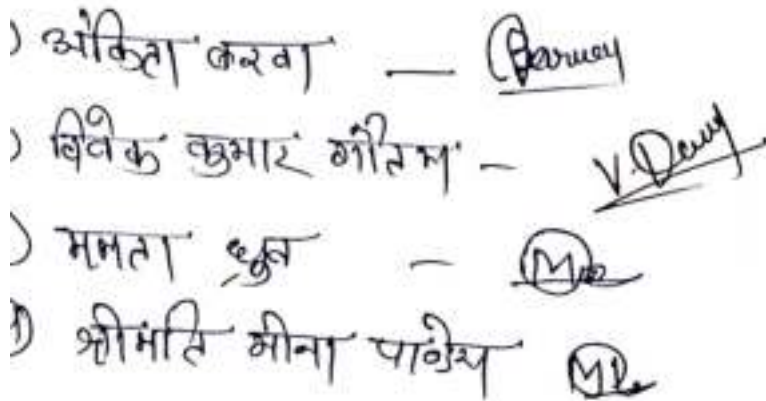 ) अंकिता करवा —
) विवेक कुमार गौतम -
) ममता ध्रुव -
) श्रीमति मीना पाण्डेय